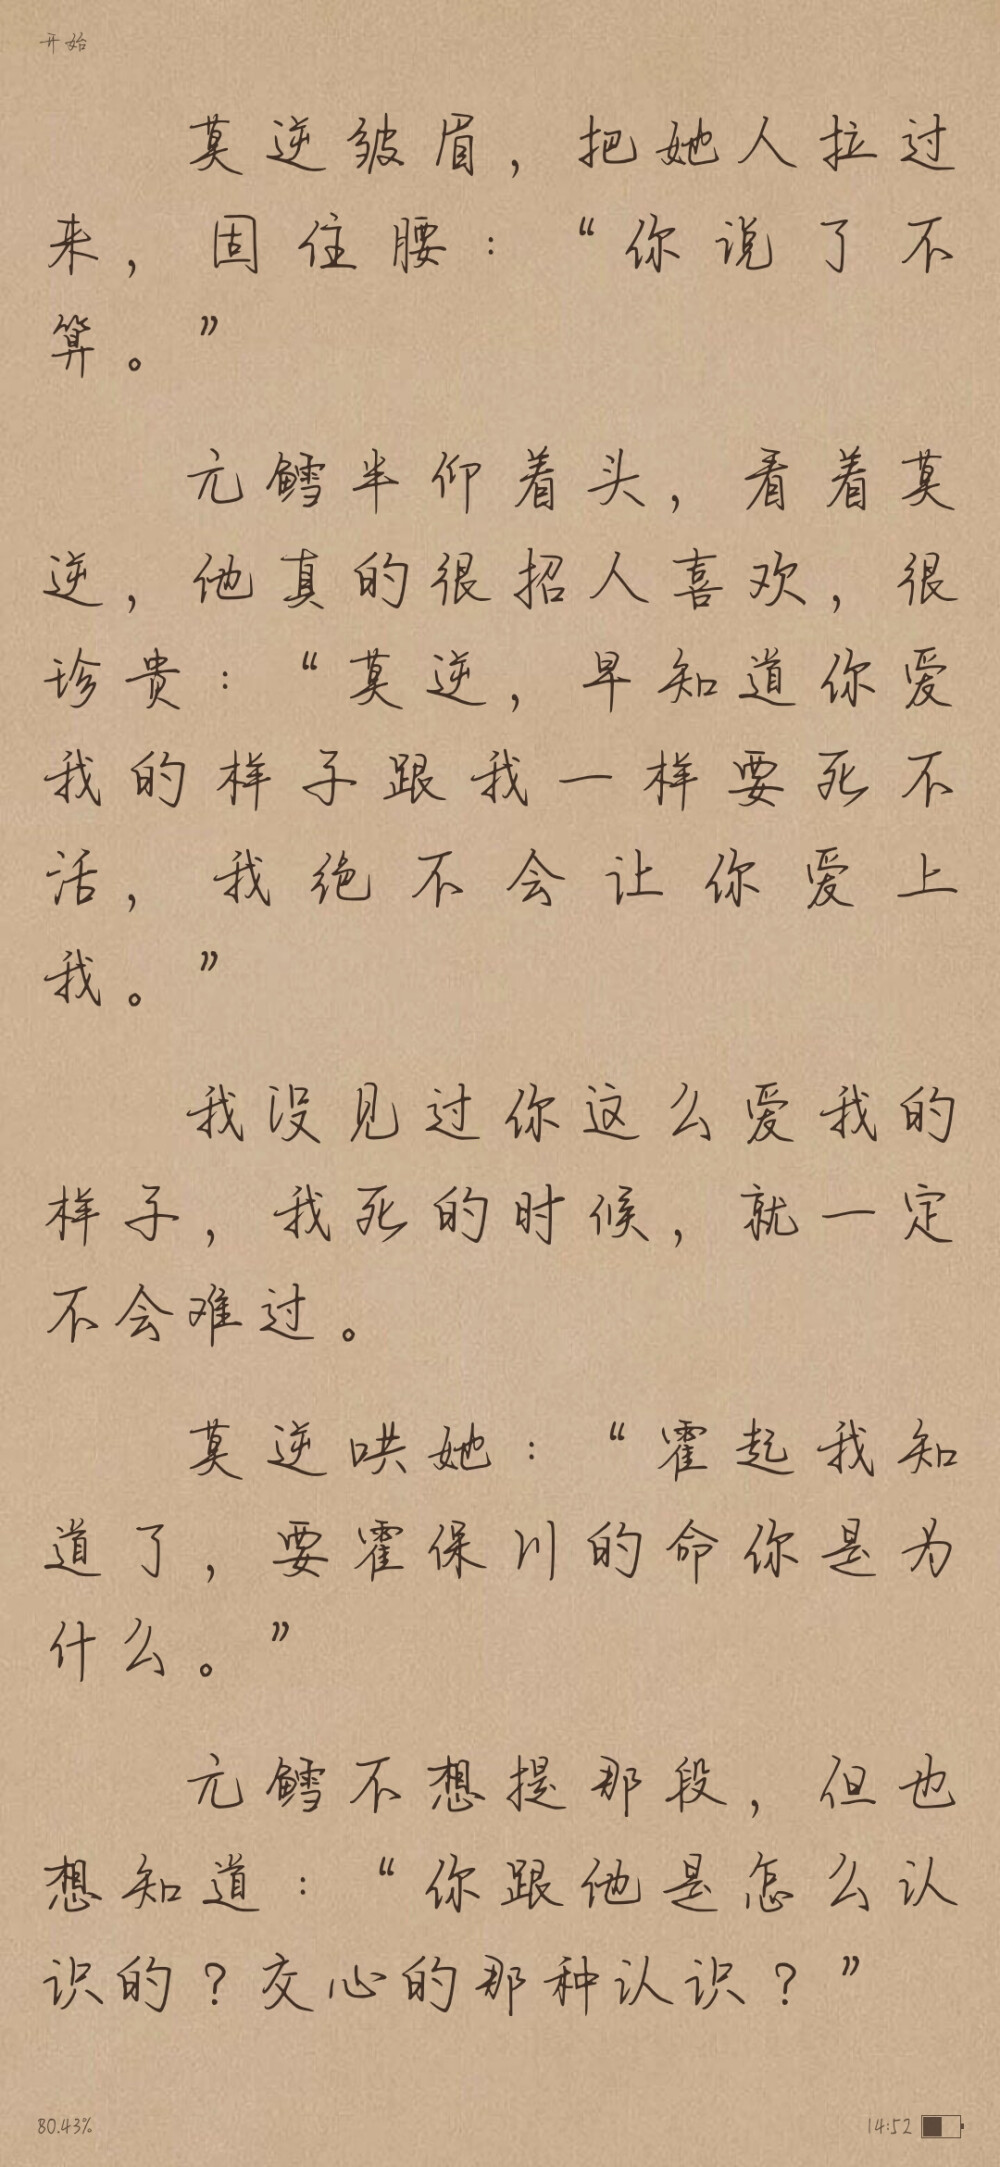 开始
莫逆皱眉，把她人拉过
来，固住腰：“你说了不
算。”
元鳕半仰着头，看着莫
逆，他真的很招人喜欢，很
珍贵：“莫逆，早知道你爱
我的样子跟我一样要死不
活，我绝不会让你爱上
我。”
我没见过你这么爱我的
样子，我死的时候，就一定
不会难过。
莫逆哄她：“霍起我知
道了，要霍保川的命你是为
什么。”
元鳕不想提那段，但也
想知道：“你跟他是怎么认
识的？交心的那种认识？”
80.43%
14:52